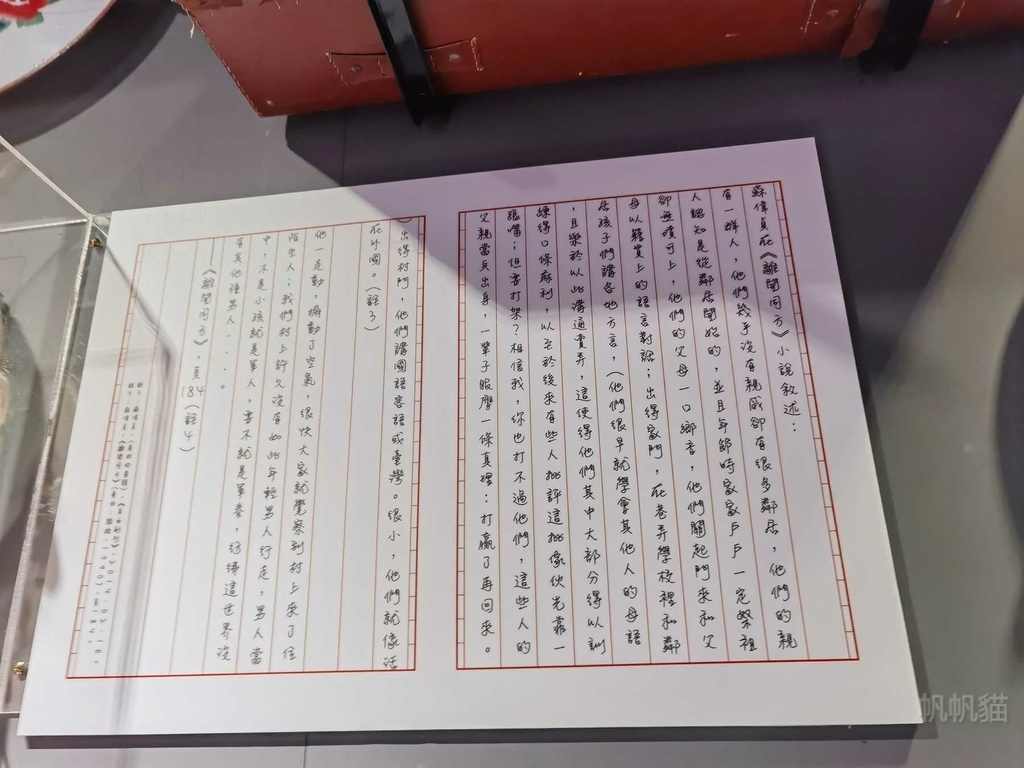 蘇偉貞在《離開同方》小說敘述：
有一群人，他們幾乎沒有親戚卻有很多鄰居，他們的親
人認知是從鄰居開始的，並且年節時家家戶戶一定祭祖
卻無墳可上，他們的父母一口鄉音，他們關起門來和父
母以籍貫上的語言對話；出得家門，在巷弄學校裡和鄰
居孩子們講各地方言，（他們很早就學會其他人的母語
，且樂於以此溝通賣弄，這使得他們其中大部分得以訓
練得口條麻利，以至於後來有些人批評這批傢伙光靠一
張嘴；但要打架？相信我，你也打不過他們，這些人的
父親當兵出身，一輩子服膺一條真理：打贏了再回來。
）出得村門，他們講國語客語或臺灣。很小，他們就像活
在外國。（註3）
他一走動，攪動了空氣，很快大家就覺察到村上來了位
陌生人；我們村上許久沒有如此年輕男人行走，男人當
中，不是小孩就是軍人，要不就是軍眷，彷彿這世界沒
有其他種男人...。
——《離開同方》，頁184（註4）
帆帆貓